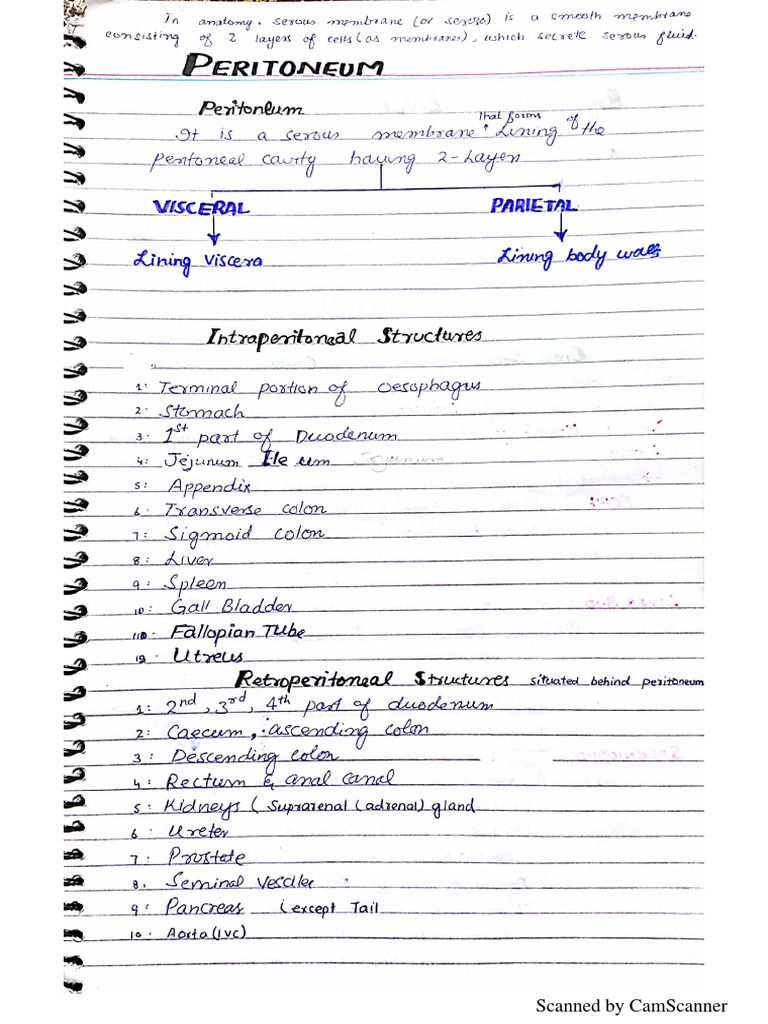 In anatomy, serous membrane (or serosa) is a smooth membrane
consisting of 2 layers of cells (as membranes), which secrete serous fluid.
PERITONEUM
Peritoneum
It is a serous membrane that forms Lining of the
peritoneal cavity having 2-Layers
VISCERAL PARIETAL
Lining Viscera Lining body walls
Intraperitoneal Structures
1: Terminal portion of Oesophagus
2: Stomach
3. 1st part of Duodenum
4: Jejunum Ileum Jejunum
5: Appendix
6: Transverse colon
7: Sigmoid colon
8: Liver
9: Spleen
10: Gall Bladder
11: Fallopian Tube
12: Utreus
Retroperitoneal Structures situated behind peritoneum
1: 2nd, 3rd, 4th part of duodenum
2: Caecum, ascending colon
3: Descending colon
4: Rectum & anal canal
5: Kidneys (Suprarenal (adrenal) gland
6: Ureter
7: Prostate
8. Seminal Vesciler
9: Pancreas (except Tail
10: Aorta (IVC)
Scanned by CamScanner